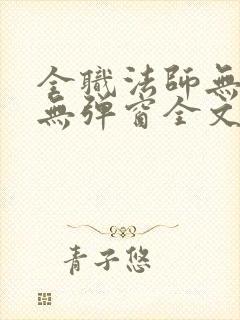 全職法師無
無彈窗全文
青子悠